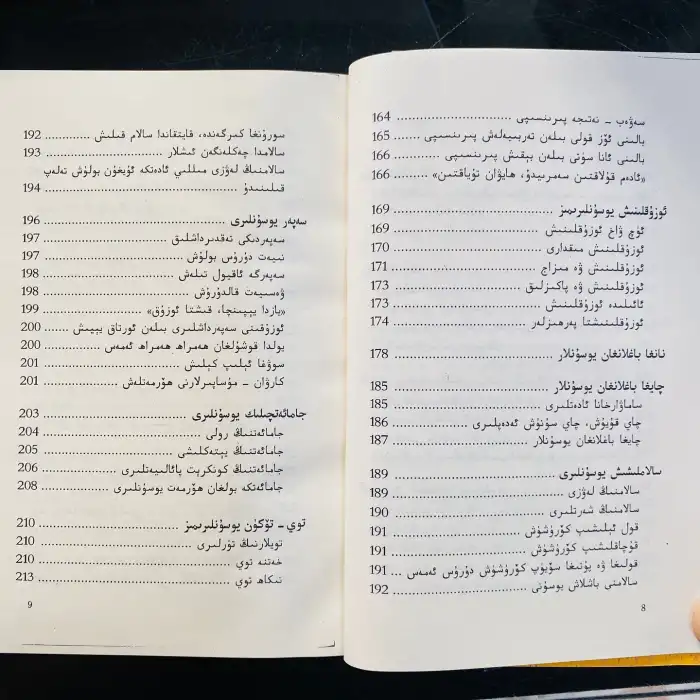 سەۋەب - نەتىجە پىرىنسىپى ................ 164
بالىنى ئۆز قولى بىلەن تەربىيەلەش پىرىنسىپى ....... 165
بالىنى ئانا سۈتى بىلەن بېقىش پىرىنسىپى ............ 166
«ئادەم قۇلاقتىن سەمرىيدۇ، ھايۋان تۇياقتىن» ........ 166
ئوزۇقلىنىش يوسۇنلىرىمىز ................ 169
ئۈچ ۋاخ ئوزۇقلىنىش ................ 169
ئوزۇقلىنىش مىقدارى ................ 170
ئوزۇقلىنىش ۋە مىزاج ................ 171
ئوزۇقلىنىش ۋە پاكىزلىق ................ 173
ئائىلىدە ئوزۇقلىنىش ................ 173
ئوزۇقلىنىشتا پەرھىزلەر ................ 174
نانغا باغلانغان يوسۇنلار ................ 178
چايغا باغلانغان يوسۇنلار ................ 185
ساماۋارخانا ئادەتلىرى ................ 185
چاي قۇيۇش، چاي سۇنۇش ئەدەپلىرى ................ 186
چايغا باغلانغان يوسۇنلار ................ 187
سالاملىشىش يوسۇنلىرى ................ 189
سالامنىڭ لەۋزى ................ 189
سالامنىڭ شەرتلىرى ................ 190
قول ئېلىشىپ كۆرۈشۈش ................ 191
قۇچاقلىشىپ كۆرۈشۈش ................ 191
قولىغا ۋە پۇتىغا سۆيۈپ كۆرۈشۈش دۇرۇس ئەمەس ... 191
سالامنى باشلاش يوسۇنى ................ 192
8
سورۇنغا كىرگەندە، قايتقاندا سالام قىلىش ............ 192
سالامدا چەكلەنگەن ئىشلار ................ 193
سالامنىڭ لەۋزى مىللىي ئادەتكە ئۇيغۇن بولۇش تەلەپ
قىلىنىدۇ ................ 194
سەپەر يوسۇنلىرى ................ 196
سەپەردىكى تەقدىرداشلىق ................ 197
نىيەت دۇرۇس بولۇش ................ 197
سەپەرگە ئاقيول تىلەش ................ 198
ۋەسىيەت قالدۇرۇش ................ 198
«يازدا يېپىنچا، قىشتا ئوزۇق» ................ 199
ئوزۇقىنى سەپەرداشلىرى بىلەن ئورتاق يېيىش ...... 200
يولدا قوشۇلغان ھەمراھ ھەمراھ ئەمەس ............ 200
سوۋغا ئېلىپ كېلىش ................ 201
كارۋان - مۇساپىرلارنى ھۆرمەتلەش ................ 201
جامائەتچىلىك يوسۇنلىرى ................ 203
جامائەتنىڭ رولى ................ 204
جامائەتنىڭ يېتەكلىشى ................ 205
جامائەتنىڭ كونكرېت پائالىيەتلىرى ................ 206
جامائەتكە بولغان ھۆرمەت يوسۇنلىرى ................ 208
توي - تۆكۈن يوسۇنلىرىمىز ................ 210
تويلارنىڭ تۈرلىرى ................ 210
خەتنە توي ................ 210
نىكاھ توي ................ 213
9